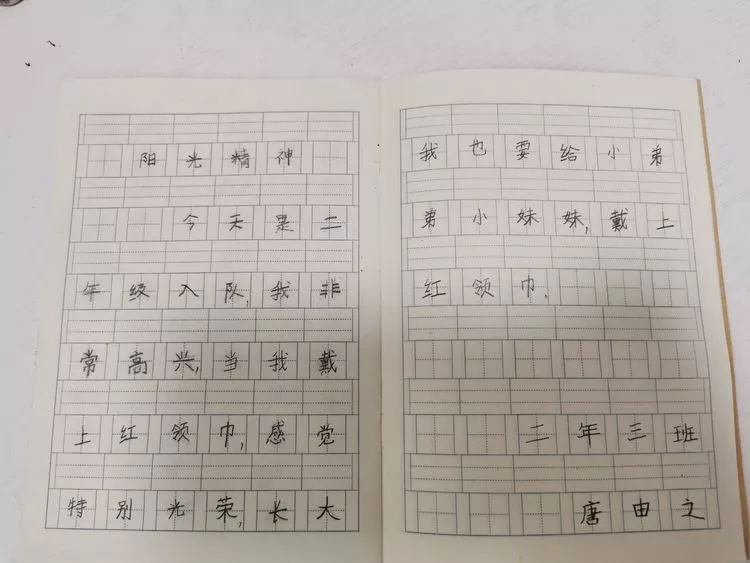 阳光精神
今天是二
年级入队,我非
常高兴,当我戴
上红领巾,感觉
特别光荣,长大
我也要给小弟
弟小妹妹,戴上
红领巾.
二年三班
唐由之